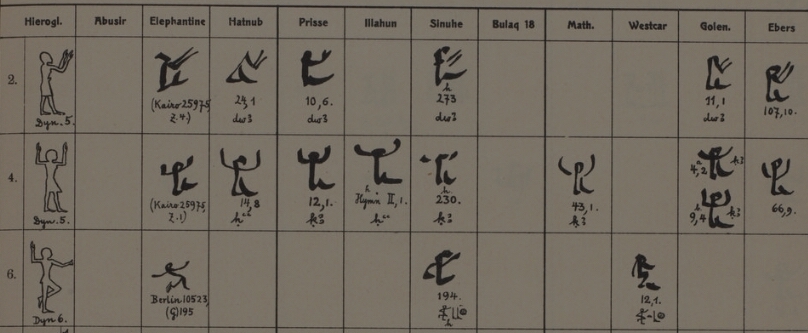 Hierogl. Abusir Elephantine Hatnub Prisse Illahun Sinuhe Bulaq 18 Math. Westcar Golen. Ebers
2.
Dyn. 5.
(Kairo 25975 Z. 4.)
24,1
dw3
10,6.
dw3
h
273
dw3
11,1
dw3
107,10.
4.
Dyn. 5.
(Kairo 25975, Z. 1)
14,8
12,1.
h
Hymn II, 1.
h
230.
43,1.
a
4,2
h
9,4
66,9.
6.
Dyn 6.
Berlin 10523, (G) 195
194.
h
12,1.